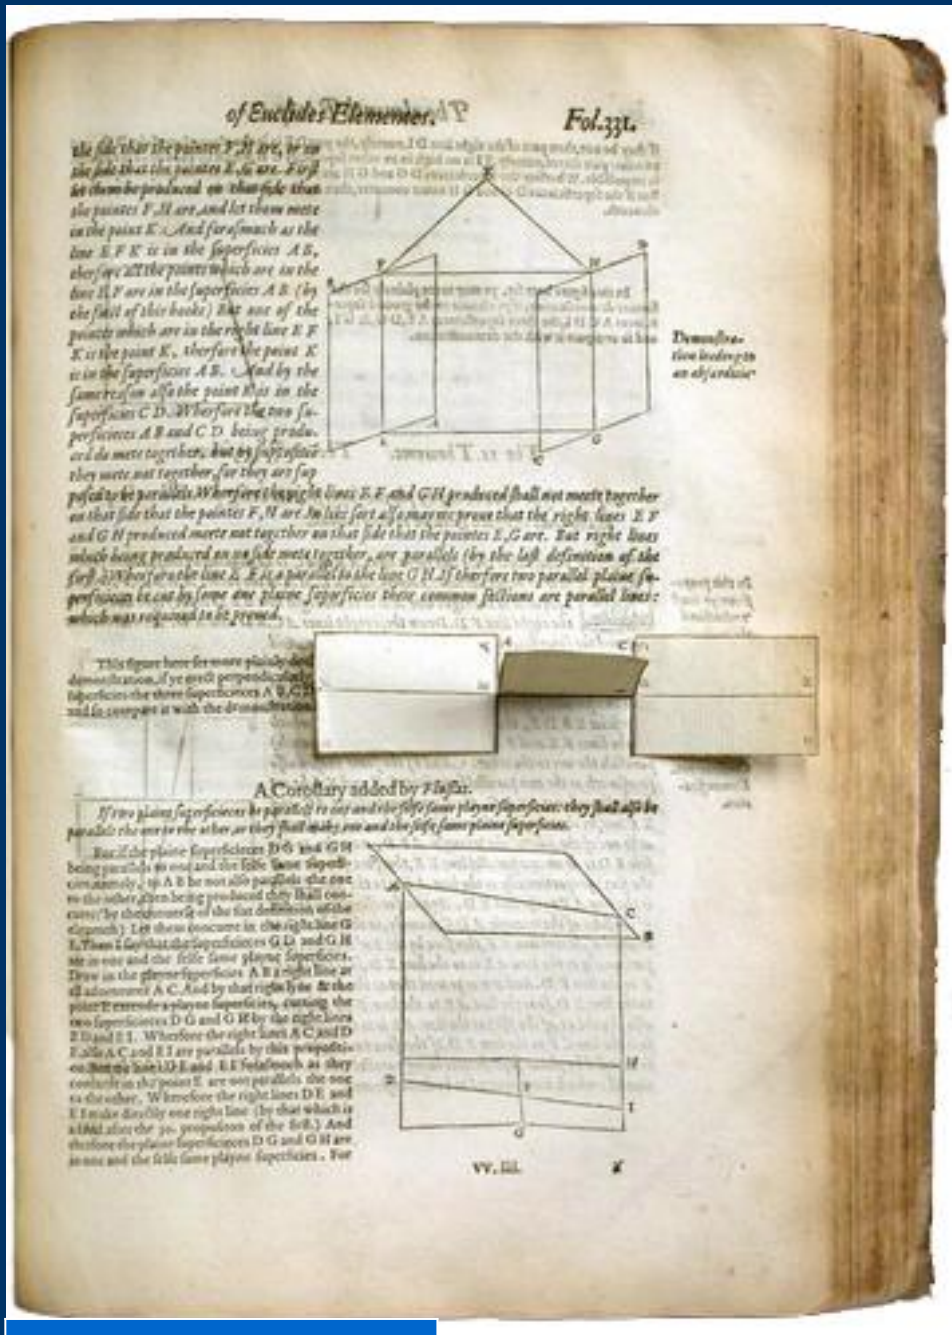 of Euclides Elementes. Fol. 331.
the side that the pointes F, H are, or on
the side that the pointes E, G are. First
let them be produced on that side that
the pointes F, H are, and let them mete
in the point K. And forasmuch as the
line E F K is in the superficies A B,
therfore all the points which are in the
line E F are in the superficies A B (by
the first of this booke.) But one of the
pointes which are in the right line E F
K is the point K, therfore the point K
is in the superficies A B. And by the
same reason also the point K is in the
superficies C D. Wherfore the two su-
perficieces A B and C D being produ-
ced do mete together, but by supposition
they mete not together, for they are sup
posed to be parallels. Wherfore the right lines E F and G H produced shall not meete together
on that side that the pointes F, H are. In like sort also may we prove that the right lines E F
and G H produced meete not together on that side that the pointes E, G are. But right lines
which being produced on no side mete together, are parallels (by the last definition of the
first.) Wherfore the line E F is a parallel to the line G H. If therfore two parallel plaine su-
perficieces be cut by some one plaine superficies their common sections are parallel lines:
which was required to be proved.
Demonstra-
tion leading to
an absurditie
This figure here set more plainly
demonstration, if ye erect perpendicularly
superficies the three superficieces A B, C D
and so compare it with the demonstration
A Corollary added by Flussas.
If two plaine superficieces be parallels to one and the selfe same playne superficies: they shall also be
parallels the one to the other, or they shall make one and the selfe same plaine superficies.
But if the plaine superficieces D G and G H
being parallels to one and the selfe same superfi-
cies namely, to A B be not also parallels the one
to the other, then being produced they shall con-
curre (by the converse of the definition of the
eleventh) Let them concurre in the right line G
E. Then I say that the superficieces G D and G H
are in one and the selfe same playne superficies.
Draw in the playne superficies A B a right line at
all adventures A C. And by that right lyne & the
point E extende a playne superficies, cutting the
two superficieces D G and G H by the right lines
E D and E I. Wherfore the right lines A C and D
E, also A C and E I are parallels by this propositi-
on. But the lines D E and E I forasmuch as they
concurre in the point E are not parallels the one
to the other. Wherefore the right lines D E and
E I make directly one right line (by that which is
added after the 30. proposition of the first.) And
therfore the plaine superficieces D G and G H are
in one and the selfe same playne superficies. For
VV. iii.